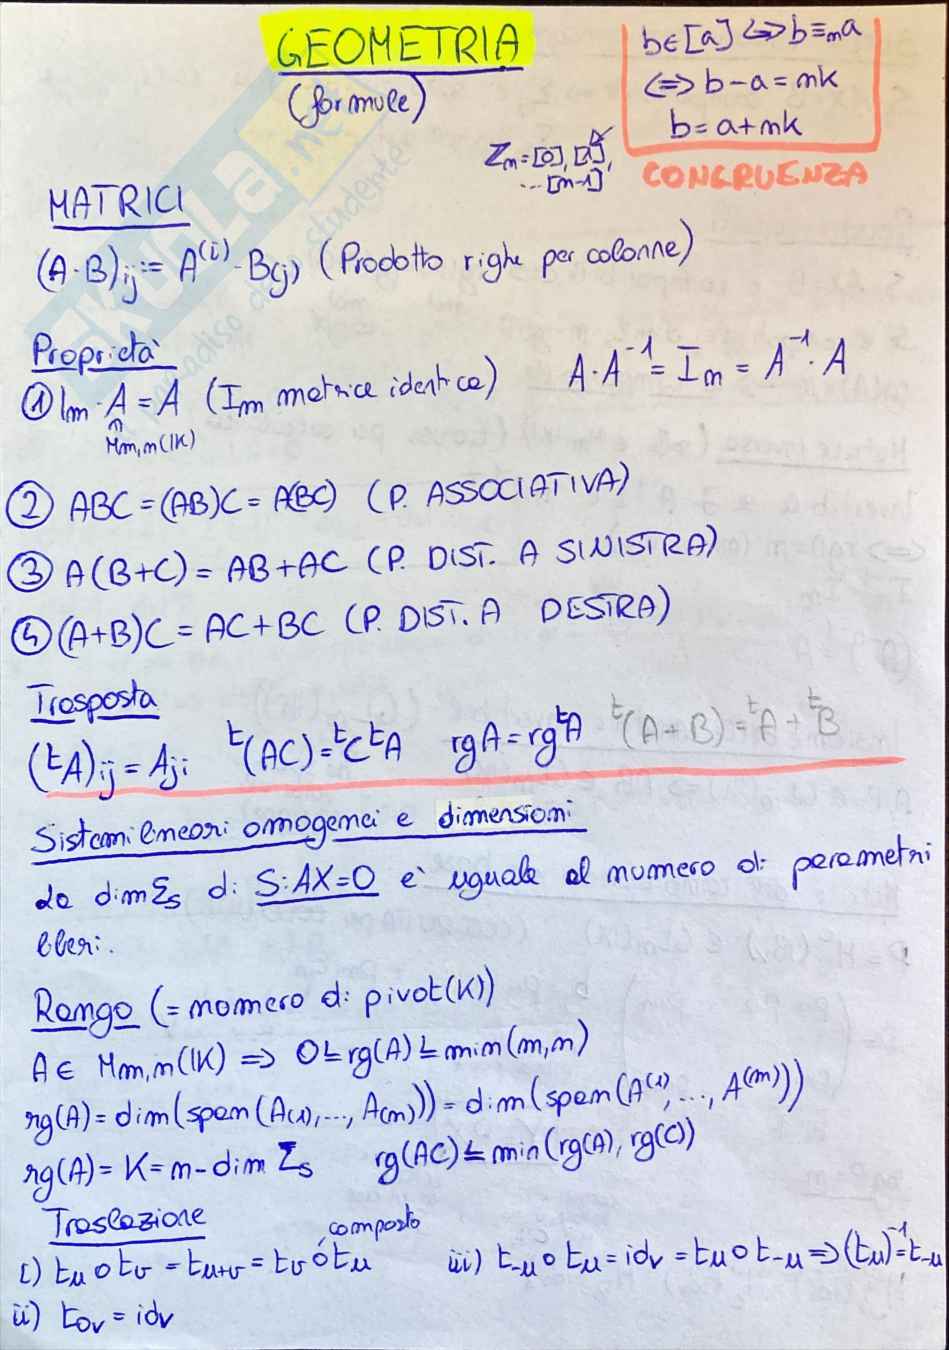 GEOMETRIA
(formule)
b∈[a] ⟺ b≡ₘa
⟺ b-a=mk
b=a+mk
CONGRUENZA
Zₘ=[0],[1],
...[m-1]
SKUOLA.net
il paradiso dello studente
MATRICI
(A·B)ij := A⁽ⁱ⁾·B(j) (Prodotto righe per colonne)
Proprietà
① Im·A=A (Im matrice identica) A·A⁻¹=Im=A⁻¹·A
Mm,n(K)
② ABC=(AB)C=A(BC) (P. ASSOCIATIVA)
③ A(B+C)=AB+AC (P. DIST. A SINISTRA)
④ (A+B)C=AC+BC (P. DIST. A DESTRA)
Trasposta
(ᵗA)ij=Aji ᵗ(AC)=ᵗCᵗA rgA=rgᵗA ᵗ(A+B)=ᵗA+ᵗB
Sistemi lineari omogenei e dimensioni
La dimΣs di S:AX=0 è uguale al numero di parametri
liberi.
Rango (=numero di pivot(K))
A∈ Mm,n(K) ⟹ 0≤rg(A)≤min(m,n)
rg(A)=dim(span(A(1),...,A(n)))=dim(span(A⁽¹⁾,...,A⁽ᵐ⁾))
rg(A)=K=n-dim Σs rg(AC)≤min(rg(A),rg(C))
Traslazione
composto
i) tu∘tv=tu+v=tv∘tu iii) t-u∘tu=idv=tu∘t-u⟹(tu)⁻¹=t-u
ii) t0v=idv